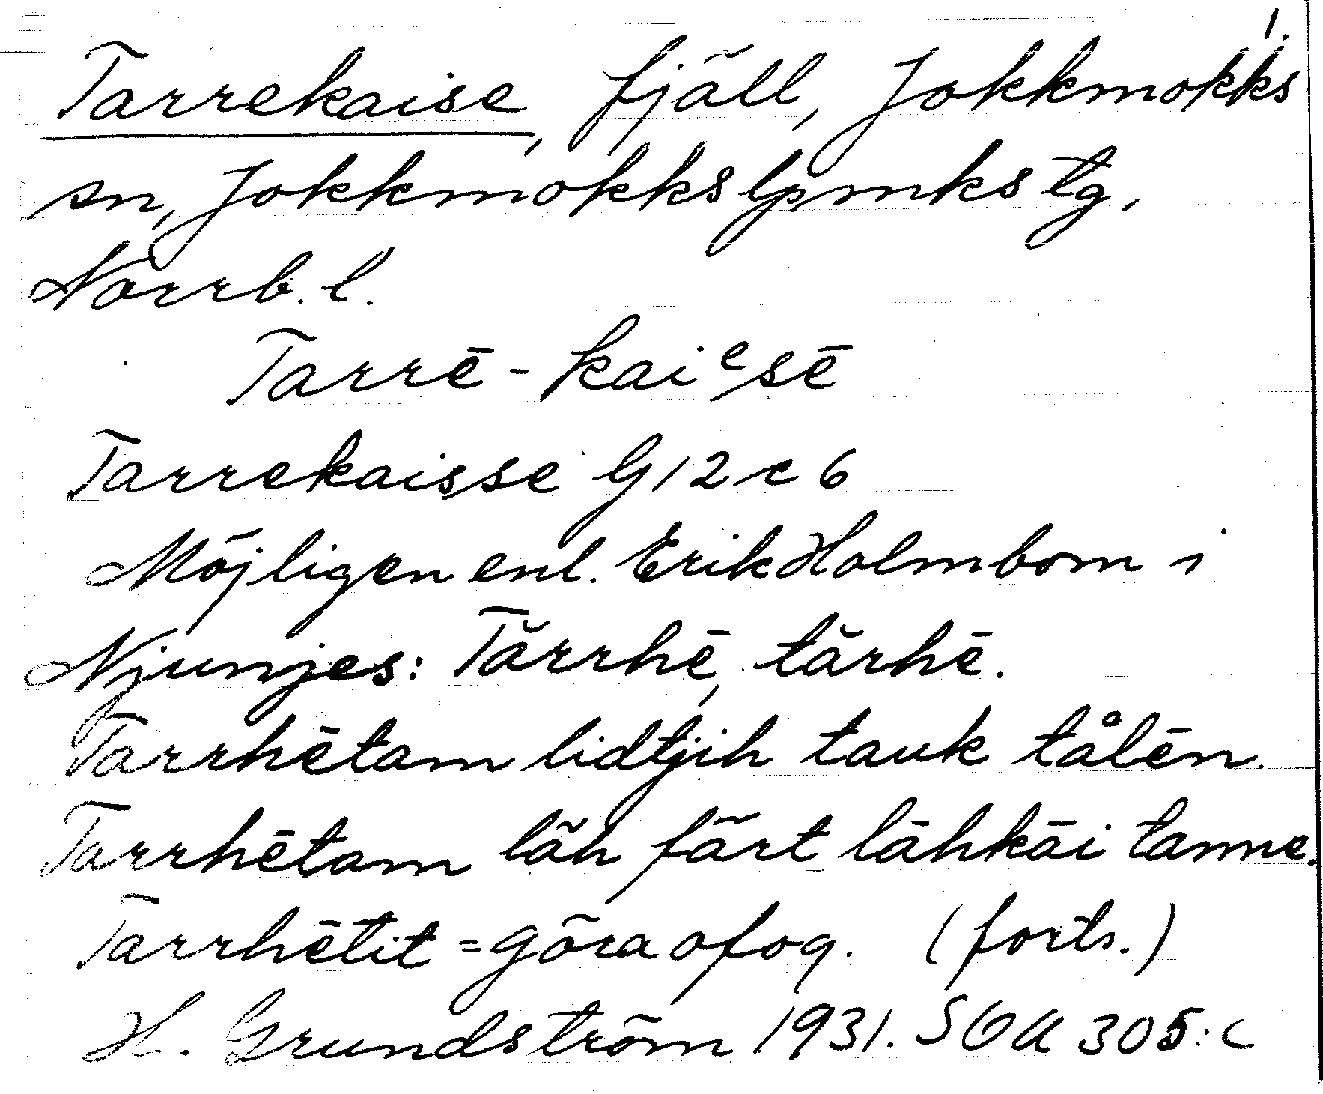 1.
Tarrekaise, fjäll, Jokkmokks
sn, Jokkmokks lpmks tg,
Norrb. l.
Tarrē - kaiᵉsē
Tarrekaisse G 12 c 6
Möjligen enl. Erik Holmbom i
Njunjes: Tărrhē, tărhē.
Tarrhētam lidtjih tauk tålēn.
Tarrhētam läh färt lāhkāi tanne.
Tarrhētit = göra ofog. (forts.)
H. Grundström 1931. SOA 305:c